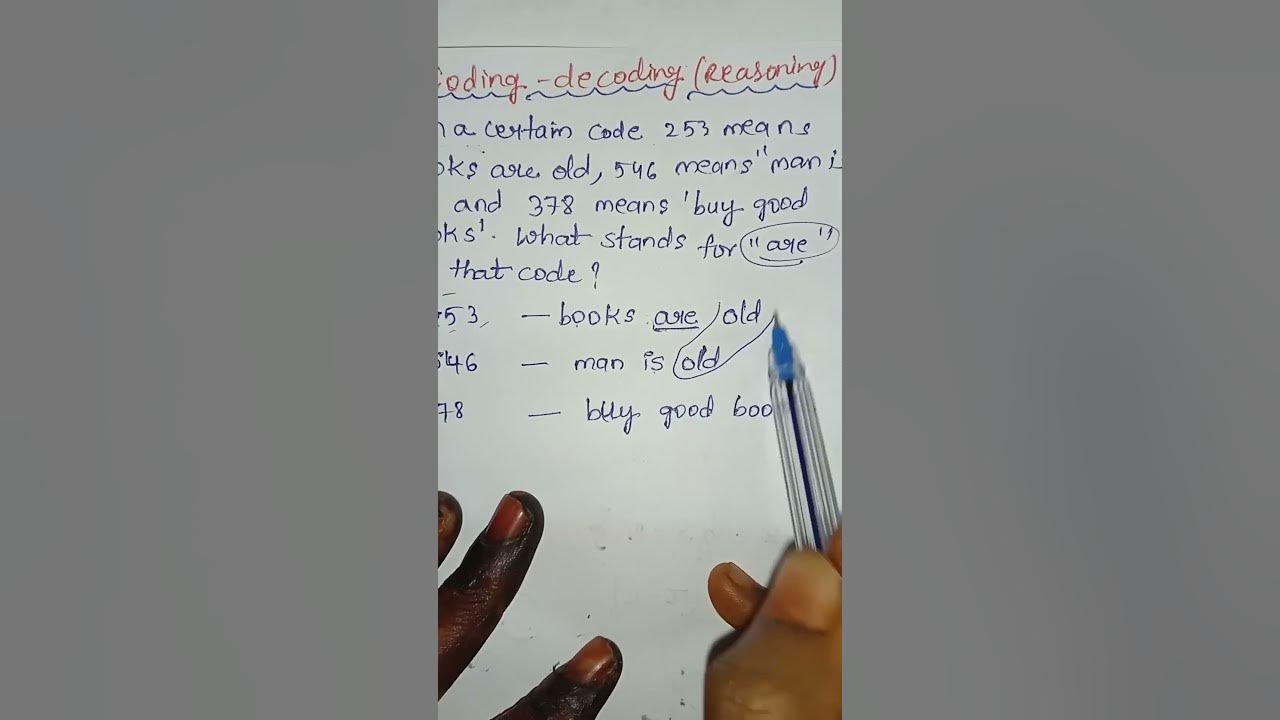 Coding - decoding (Reasoning)
a certain code 253 means
are old, 546 means "man
and 378 means 'buy good
What stands for "are"
that code?
53 — books are old
546 — man is old
78 — buy good boo